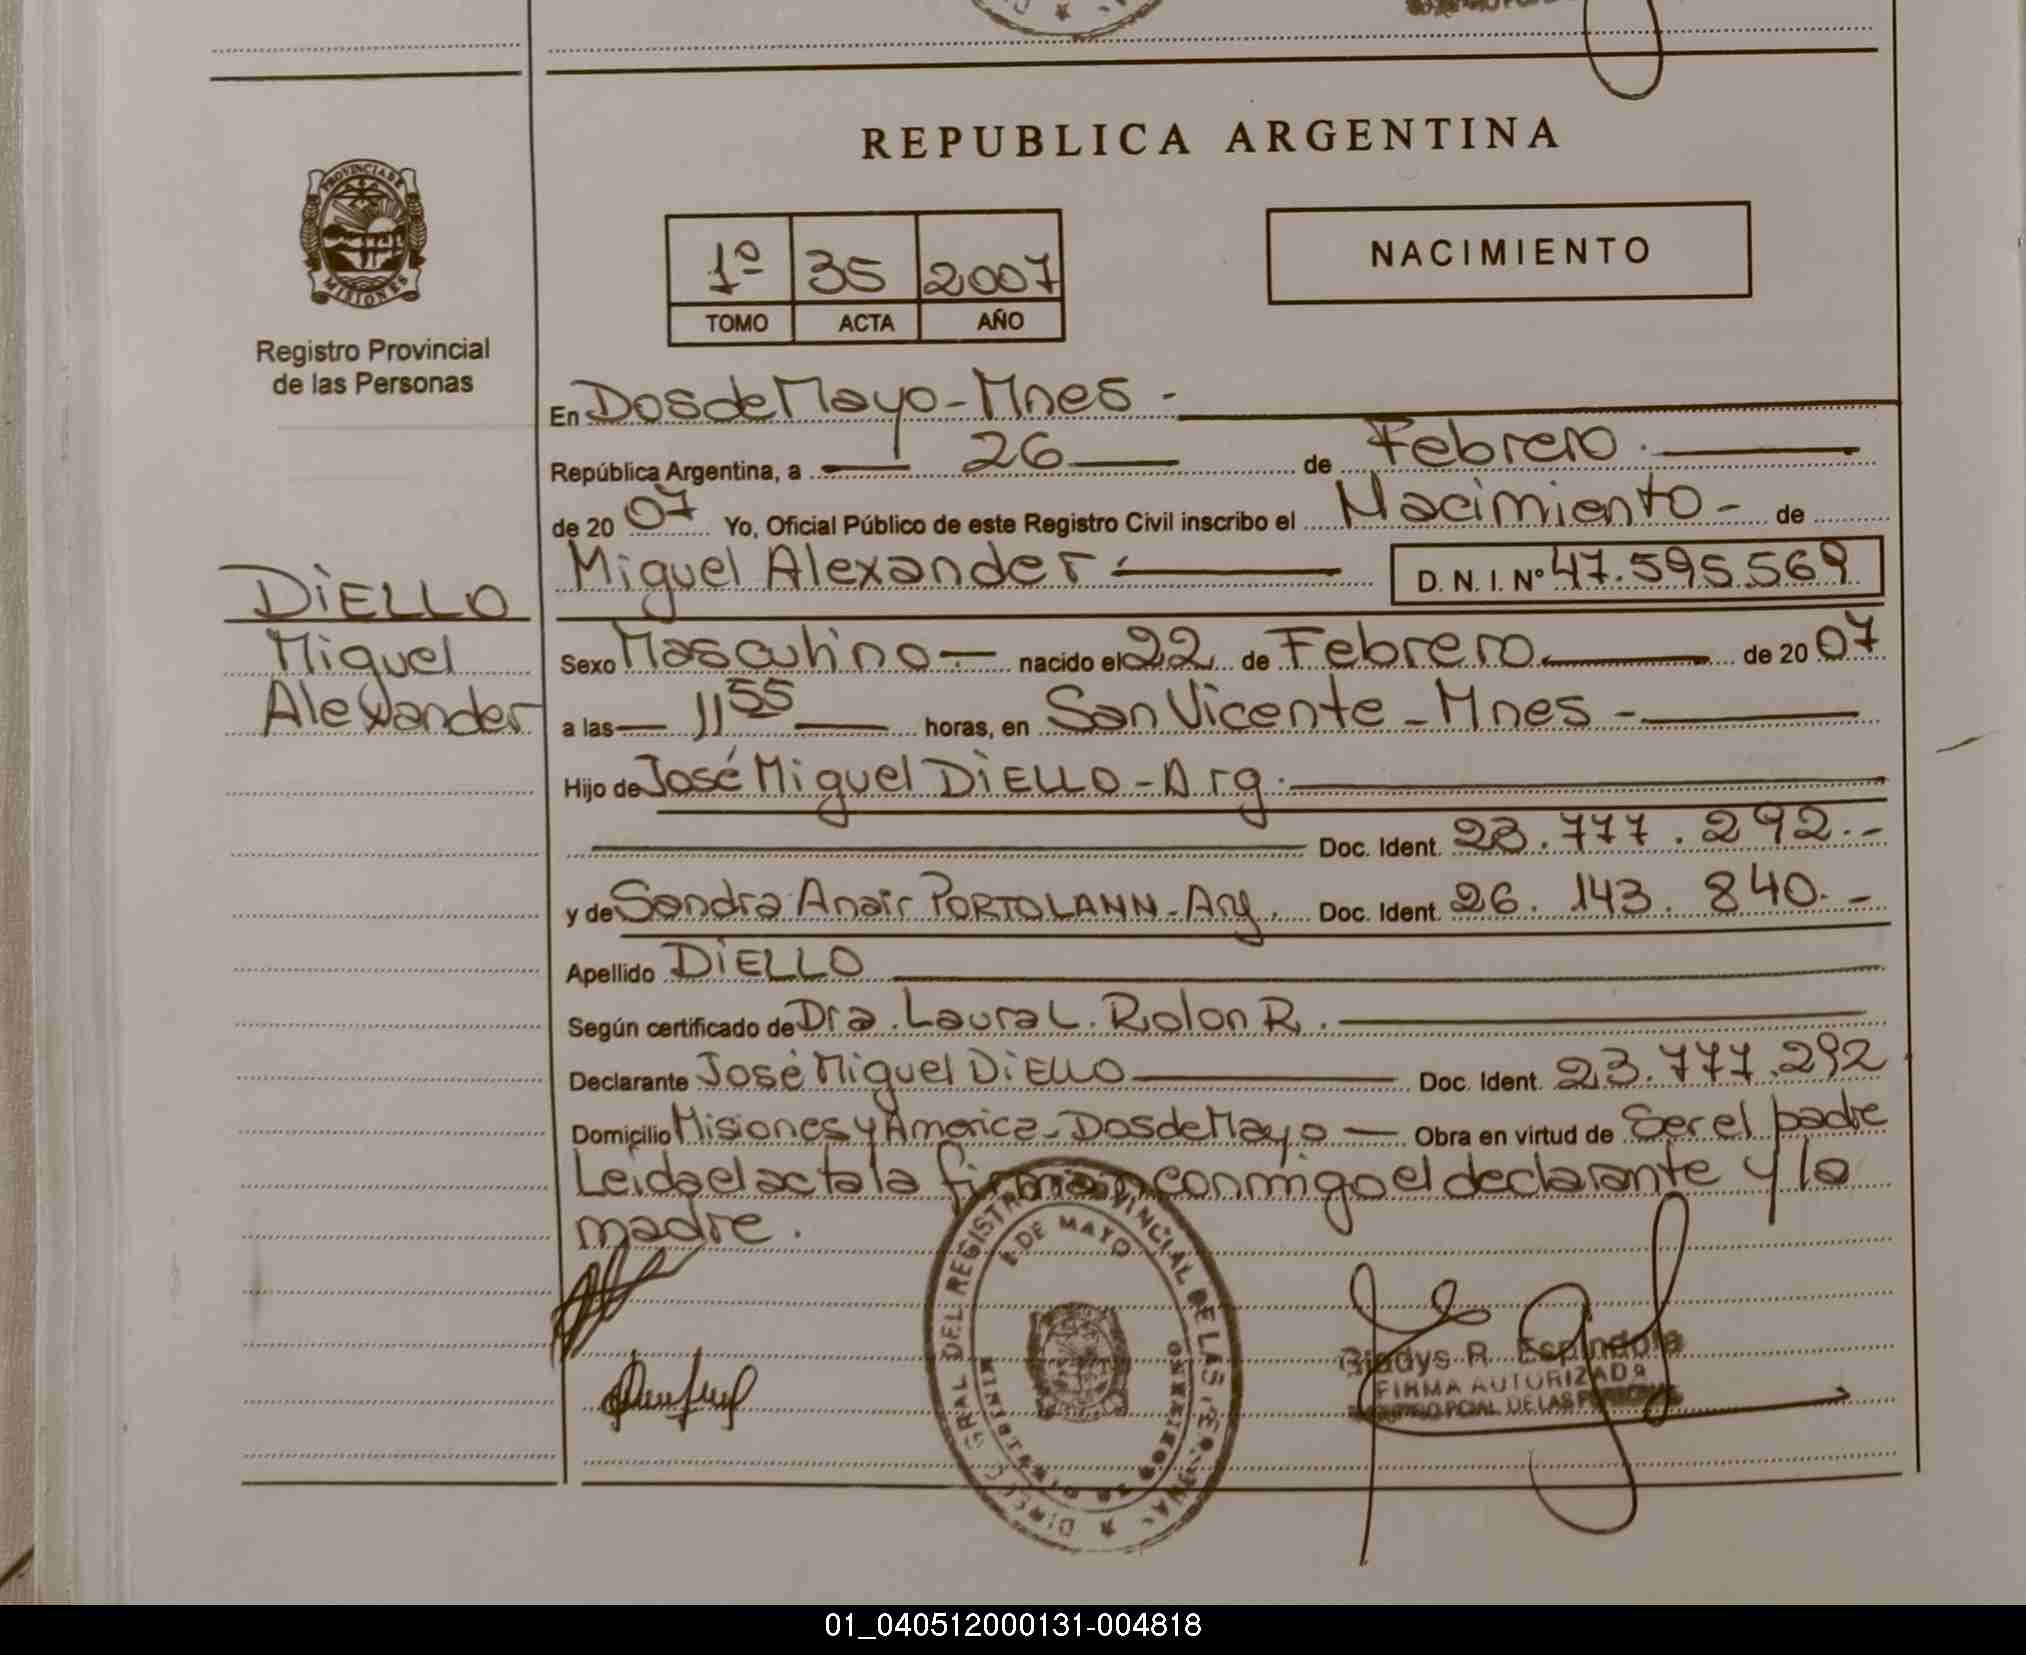 REPUBLICA ARGENTINA
PROVINCIA DE
MISIONES
Registro Provincial
de las Personas
1º 35 2007
TOMO ACTA AÑO
NACIMIENTO
En Dos de Mayo - Mnes -
República Argentina, a 26 de Febrero.
de 20 07 Yo, Oficial Público de este Registro Civil inscribo el Nacimiento - de
Miguel Alexander - D. N. I. Nº 47.595.569
DiELLO
Miguel
Alexander
Sexo Masculino - nacido el 22 de Febrero de 20 07
a las 11 55 horas, en San Vicente - Mnes -
Hijo de José Miguel DiELLO - Arg.
Doc. Ident. 23.777.292.-
y de Sandra Anair PORTOLANN - Arg. Doc. Ident. 26.143.840.-
Apellido DiELLO
Según certificado de Dra. Laura L. Rolon R.
Declarante José Miguel DiELLO Doc. Ident. 23.777.292
Domicilio Misiones y America - Dos de Mayo - Obra en virtud de Ser el padre
Leida el acta la firman conmigo el declarante y la
madre.
DE MAYO
Gladys R. Espindola
FIRMA AUTORIZADA
01_040512000131-004818